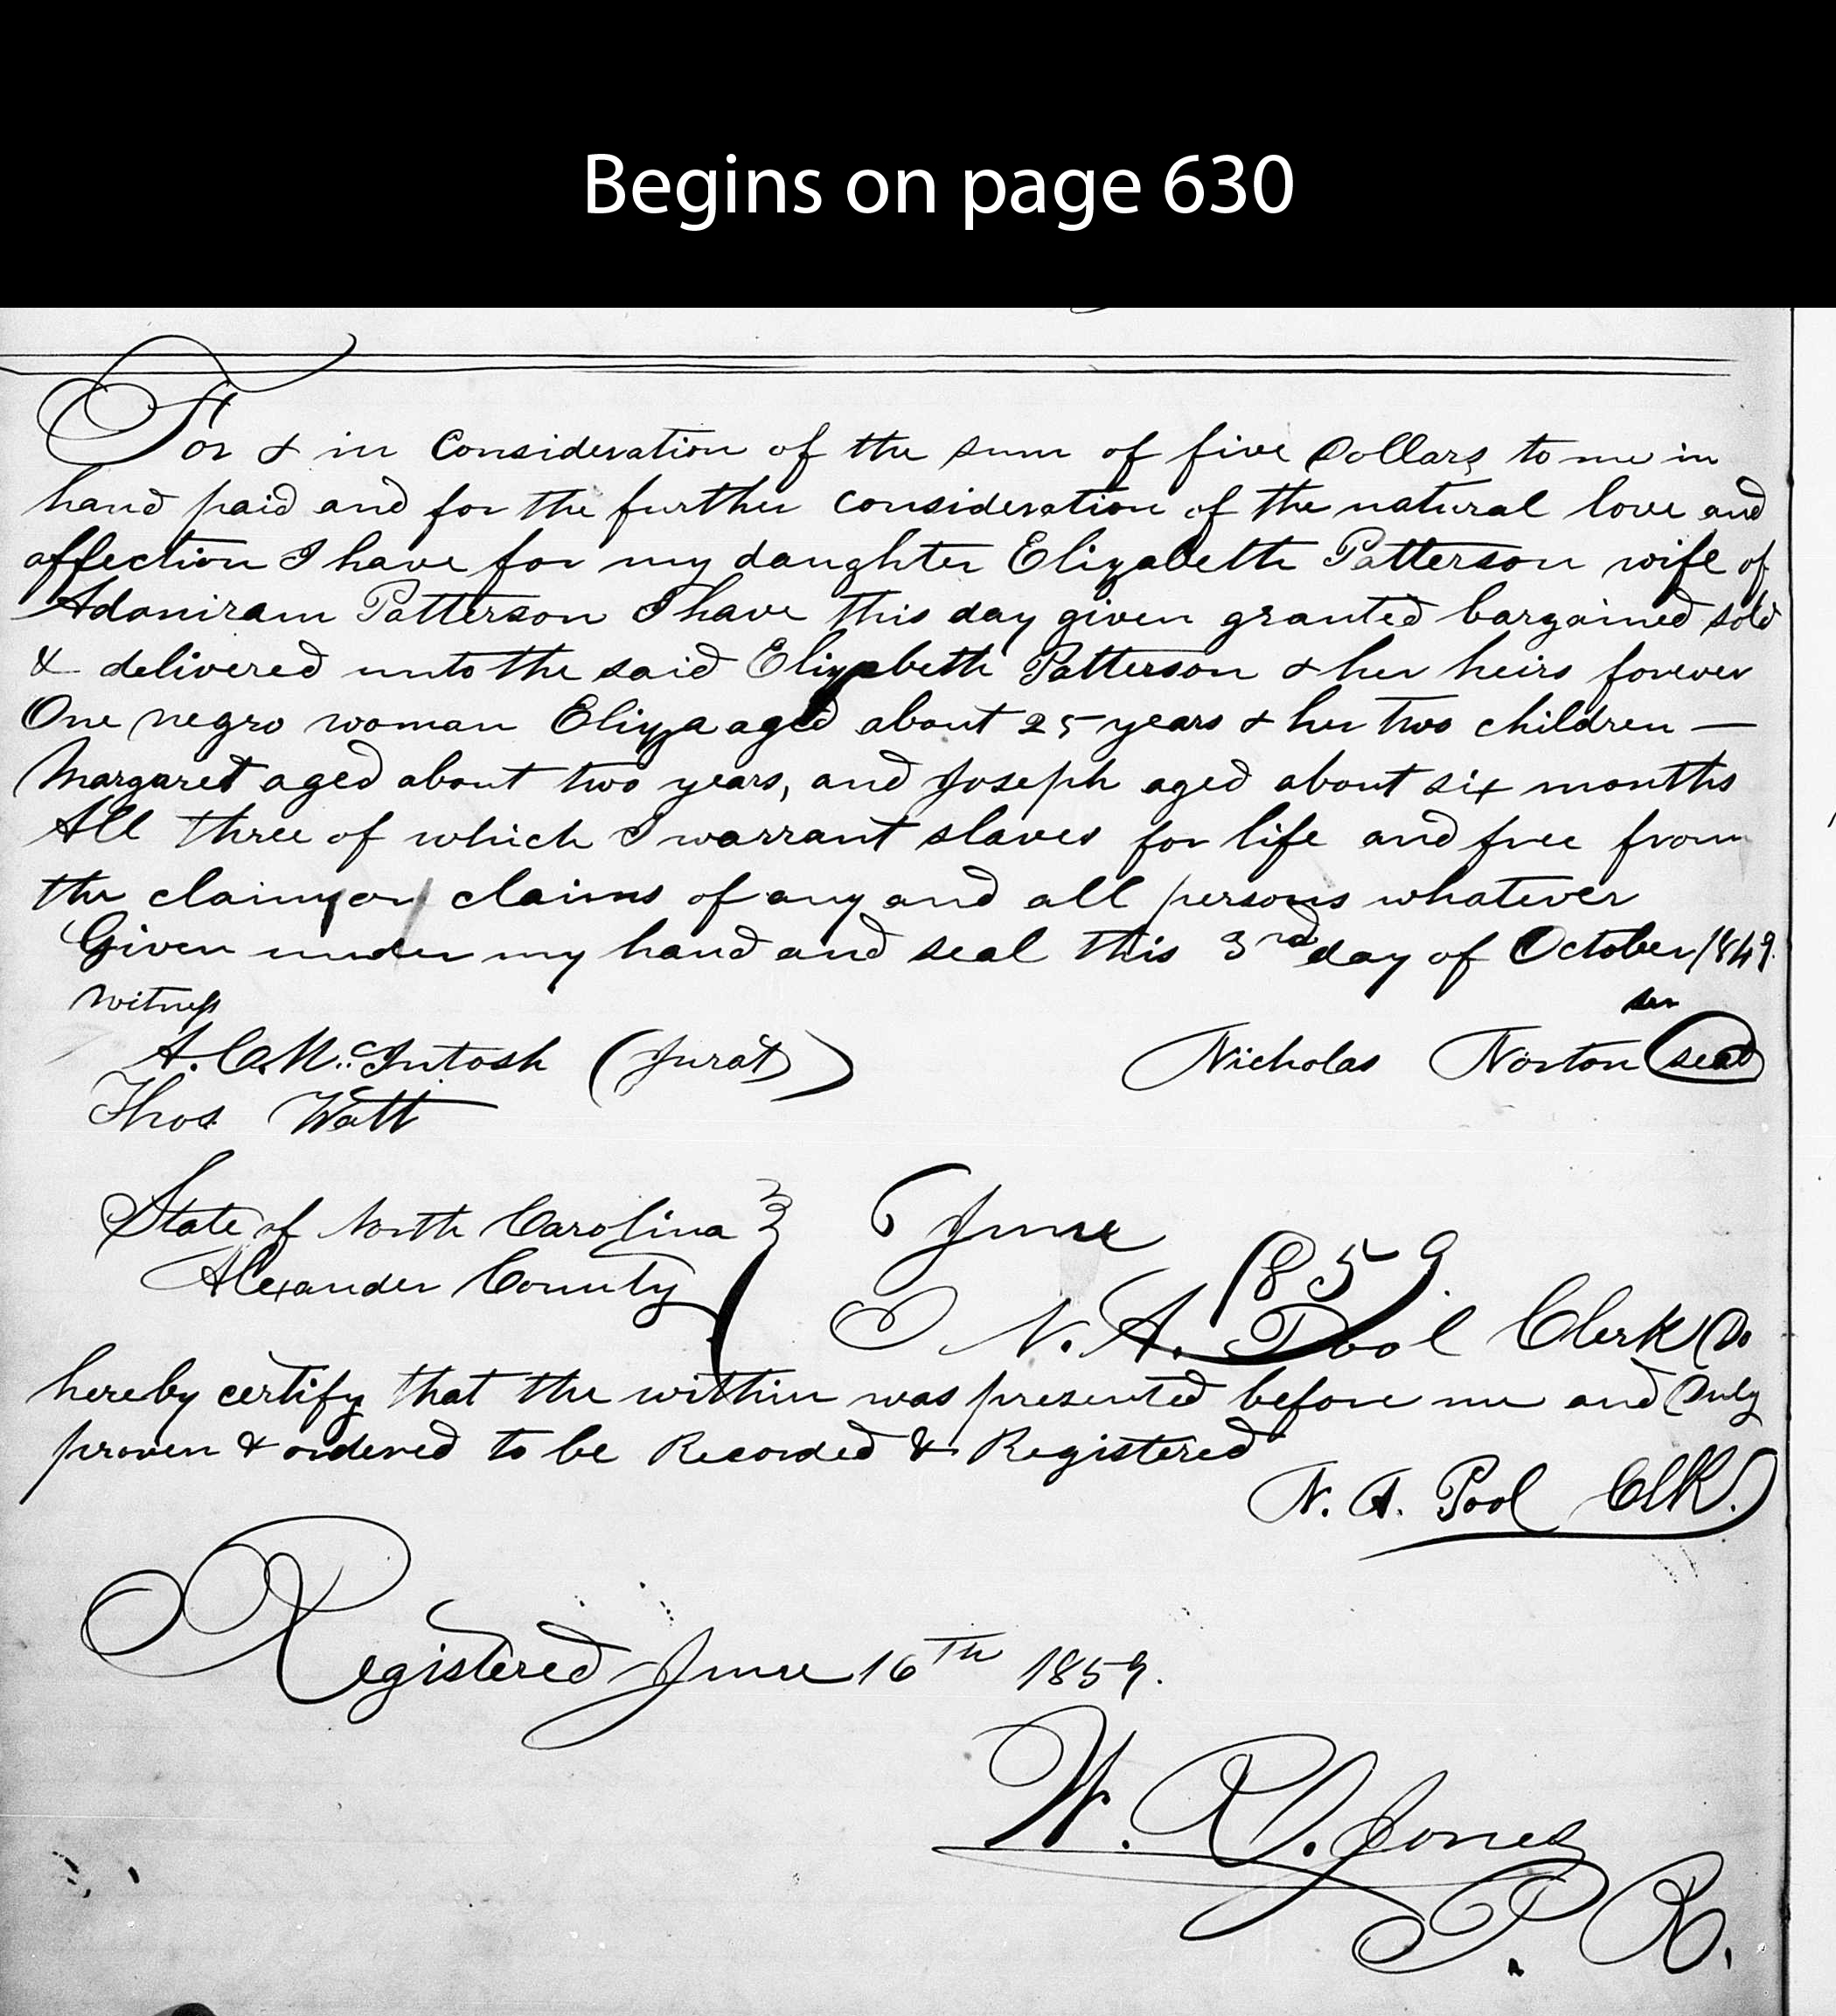 Begins on page 630
For & in Consideration of the sum of five Dollars to me in
hand paid and for the further consideration of the natural love and
affection I have for my daughter Elizabeth Patterson wife of
Adoniram Patterson I have this day given granted bargained sold
& delivered unto the said Elizabeth Patterson & her heirs forever
One negro woman Eliza aged about 25 years & her two children —
Margaret aged about two years, and Joseph aged about six months
All three of which I warrant slaves for life and free from
the claim or claims of any and all persons whatever
Given under my hand and seal this 3rd day of October 1849.
Witness
sen
A. C. McIntosh (Jurat) Nicholas Norton (seal)
Thos Watt
State of North Carolina } 6 June
Alexander County } 1859.
I N. A. Pool Clerk Do
hereby certify that the within was presented before me and Duly
proven & ordered to be Recorded & Registered
N. A. Pool Clk.
Registered June 16th 1859.
W. R. D. Jones
P. R.